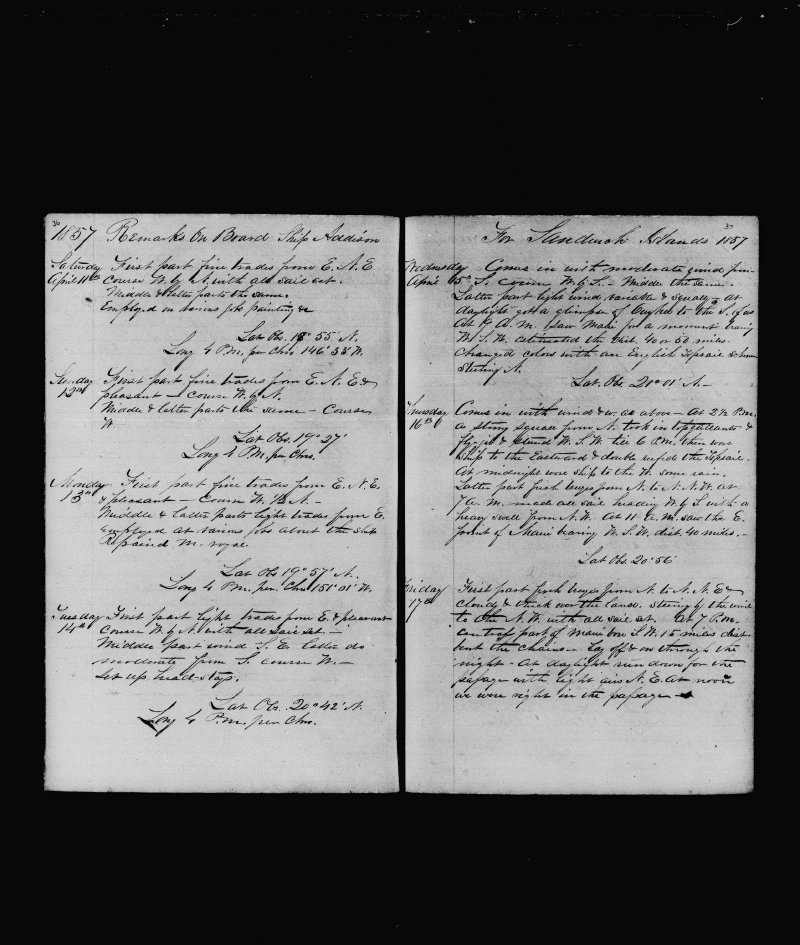 36
1857 Remarks On Board Ship Addison
Saturday First part fine trades from E.N.E
April 11th Course W. by N. with all sail set.
Middle & latter parts the same.
Employed on various jobs painting &c
Lat Obs. 18° 55' N.
Long 4 P.M. per Chro. 146° 33' W.
Sunday First part fine trades from E.N.E &
12th pleasant — course W. by N.
Middle & latter parts the same — Course
W.
Lat Obs. 19° 27'
Long 4 P.M. per Chro.
Monday First part fine trades from E.N.E.
13th & pleasant — Course W. ½ N. —
Middle & latter parts light trades from E.
employed at various jobs about the ship
Repaired M. royal
Lat Obs 19° 57' N.
Long 4 P.M. per. Chro 151° 01' W.
Tuesday First part light trades from E. & pleasant
14th Course W. by N. with all sail set. —
Middle part wind S.E. latter do
moderate from S. course W. —
Set up head-stays.
Lat Obs. 20° 42' N.
Long 4 P.M. per Chro.
37
For Sandwich Islands 1857
Wednesday Comes in with moderate wind from
April 15th S. course W. by S. — Middle the same.
Latter part light wind variable & squally — At
daylight got a glimpse of to the S. of us
At 9 A.M. saw Maui for a moment bearing
W.S.W. estimated the dist. 40 or 50 miles.
Changed colors with an English Topsail schooner
steering N.
Lat. Obs. 21° 01' N. —
Thursday Comes in with wind &c. as above — At 2½ P.M.
16th a strong squall from N. took in topgallants &
fly. jib & steered W.S.W till 6 P.M. then wore
ship to the Eastward & double reefed the Topsails.
At midnight wore ship to the W. some rain.
Latter part fresh breezes from N. to N.N.W. at
7 A.M. made all sail heading W. by S. with a
heavy swell from N.W. At 11 A.M. saw the E.
point of Maui bearing W.S.W. dist. 40 miles. —
Lat Obs. 20° 56'
Friday First part fresh breezes from N. to N.N.E &
17th cloudy & thick over the land. Steering by the wind
to the N.W. with all sail set. At 7 P.M.
centre part of Maui bore S.W. 15 miles dist.
bent the chains — Lay off & on through the
night — At daylight run down for the
passage with light airs N.E. At noon
we were right in the passage —